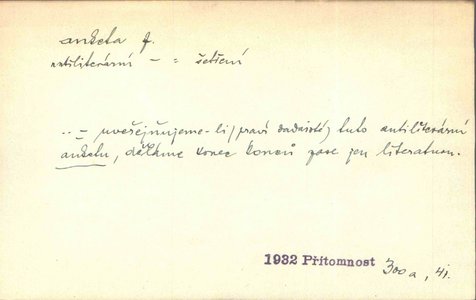 anketa f.
antiliterární – = šetření
.. – uveřejňujeme-li, praví dadaisté, tuto antiliterární
anketu, děláme konec konců zase jen literaturu.
1932 Přítomnost 300a, 41.